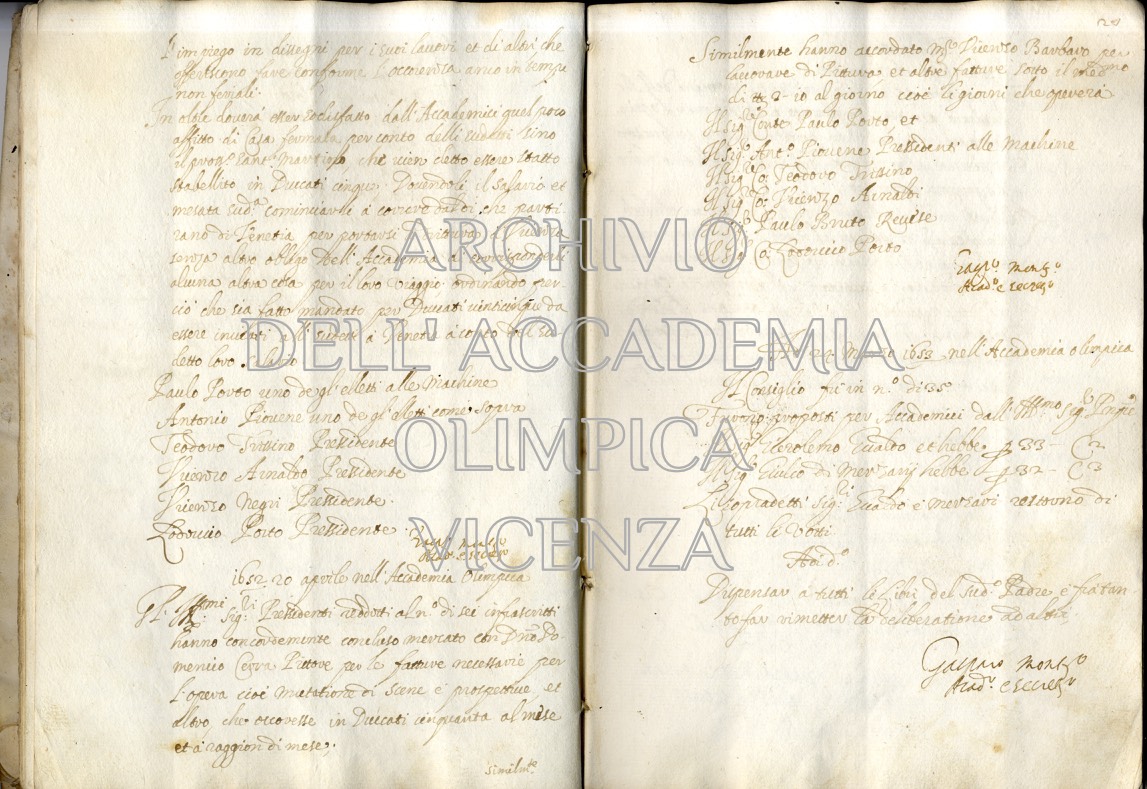 impiego in dissegni per i suoi lavori et di altri che
offeriscono fare conforme l'occorenza anco in tempi
non feriali.
In oltre doverà esser sodisfatto dall'Accademici quel poco
affitto di Casa per conto delli sudetti sino
che vien detto essere statto
stabellito in Duccati cinque. Dovendoli il salario et
mesata sud.ª cominciarli à correre dal dì che parti-
rano di Venetia per portarsi à Vicenza
senza altro obligo dell'Accademia di corrisponderli
alcuna altra cosa per il loro viaggio ordinando per-
ciò che sia fatto mandato per Duccati venticinque da
essere inviati alli sudetti à Venetia à conto del su-
detto loro salario
Paulo Porto uno degl'elletti alle Machine
Antonio Piovene uno degl'eletti come sopra
Teodoro Trissino Pressidente
Vicenzo Arnaldo Pressidente
Vicenzo Negri Pressidente.
Lodovico Porto Pressidente.
1652 20 aprile nell'Accademia Olimpica
Gl'Ill.mi Sig.ri Pressidenti redotti al n.º di sei infrascritti
hanno concordemente concluso mercato con D.no Do-
menico Cerra Pittore per le fatture necessarie per
l'opera cioè mutationi di scene e prospettive et
altro che occoresse in Duccati cinquanta al mese
et à raggion di mese;
Similm.te
Similmente hanno accordato m.º Vicenzo Barbaro per
lavorare di Pittura et altre fatture sotto il med.mo
di al giorno cioè li giorni che opererà
Il Sig.r Conte Paulo Porto et
Il Sig.r Ant.º Piovene Pressidenti alle Machine
Il Sig.r Co: Teodoro Trisino
Il Sig.r Co: Vicenzo Arnaldi
Il Sig.r Paulo Bruto Revese
Il Sig.r Co: Lodovico Porto
Acad.º e secret.º
Marzo 1653 nell'Accademia olimpica
Il Consiglio fu in n.º di 35
Furono proposti per Accademici dall'Ill.mo Sig.r
Il Sig.r Gierolemo Gualdo et hebbe P 33 – C 2
Il Sig.r Giulio di Merzarij hebbe P 32 – C 3
Li sopradetti Sig.ri Gualdo e Merzari restorno di
tutti li Votti
Adi d.º
Dispensar à tutti le Libri del Sud.º Padre è fra tan-
to far rimetter la deliberatione ad altri
Gasparo
Acad.º e secret.º
ARCHIVIO
DELL'ACCADEMIA
OLIMPICA
VICENZA